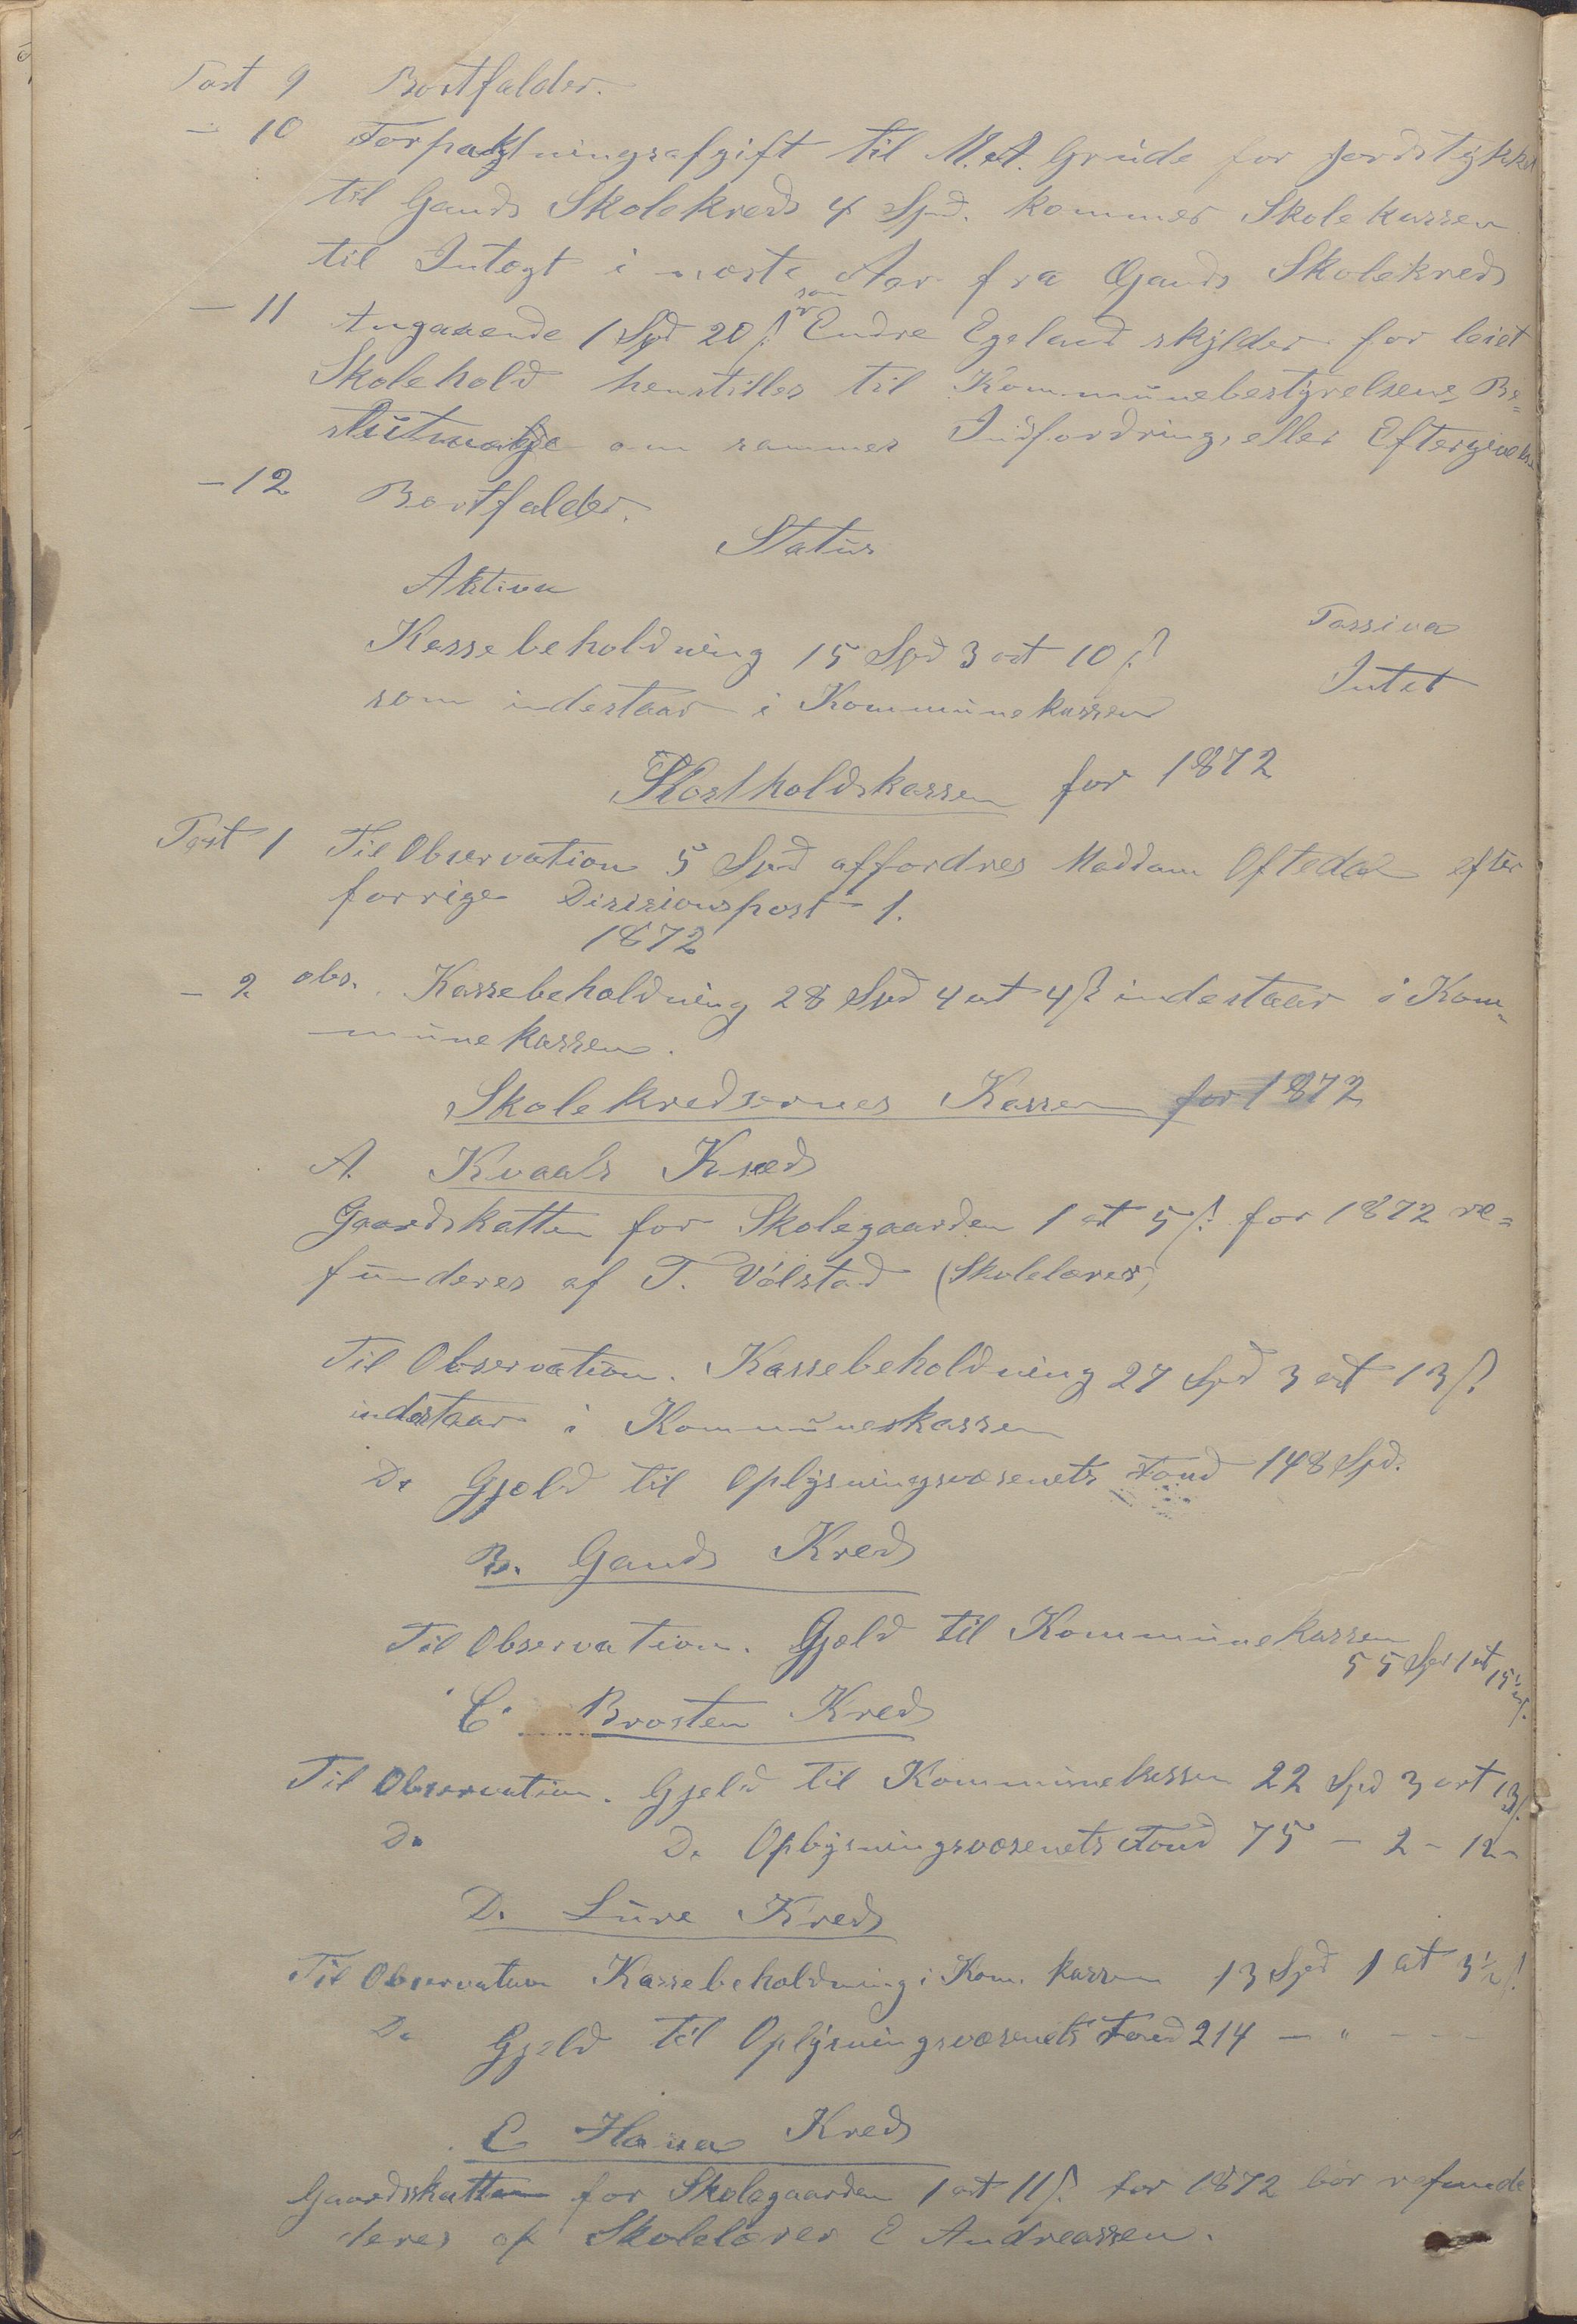 Post 9 Bortfalder.
- 10 Forpagtningsafgift til M. A. Grude for Jordstykket
til Gands Skolekreds 4 Spd. kommer Skolekassen
til Intægt i næste Aar fra Gands Skolekreds
- 11 Angaaende 1 Spd 20 ß som Endre Egeland skylder for leiet
Skolehold henstilles til Kommunebestyrelsens Be=
om sammes Indfordring eller Eftergivelse
- 12 Bortfalder.
Status
Aktiva
Passiva
Kassebeholdning 15 Spd 3 ort 10 ß
Intet
som indestaar i Kommunekassen
Kostholdskassen for 1872
Post 1 Til Observation 5 Spd affordres Maddam Oftedal efter
forrige Desisionspost 1.
1872
- 2 obs. Kassebeholdning 28 Spd 4 ort 4 ß indestaar i Kom=
munekassen.
Skolekredsernes Kasser for 1872
A. Kvaals Kreds
Gaardskatten for Skolegaarden 1 ort 5 ß for 1872 re=
funderes af T. Vólstad (Skolelærer)
Til Observation. Kassebeholdning 27 Spd 3 ort 13 ß
indestaar i Kommuneskassen
Do Gjæld til Oplysningsvæsenets Fond 148 Spd.
B. Gands Kreds
Til Observation. Gjæld til Kommunekassen
55 Spd 1 ort 15½ ß.
C. Brosten Kreds
Til Observation. Gjeld til Kommunekassen 22 Spd 3 ort 13 ß.
Do Do Oplysningsvæsenets Fond 75 - 2 - 12 -
D. Lure Kreds
Til Observation Kassebeholdning i Kom. kassen 13 Spd 1 ort 3½ ß
Do Gjeld til Oplysningsvæsenets Fond 214 - " - - -
E Hana Kreds
Gaardsskatten for Skolegaarden 1 ort 11 ß. for 1872 bør refunde
deres af Skolelærer E Andreassen.